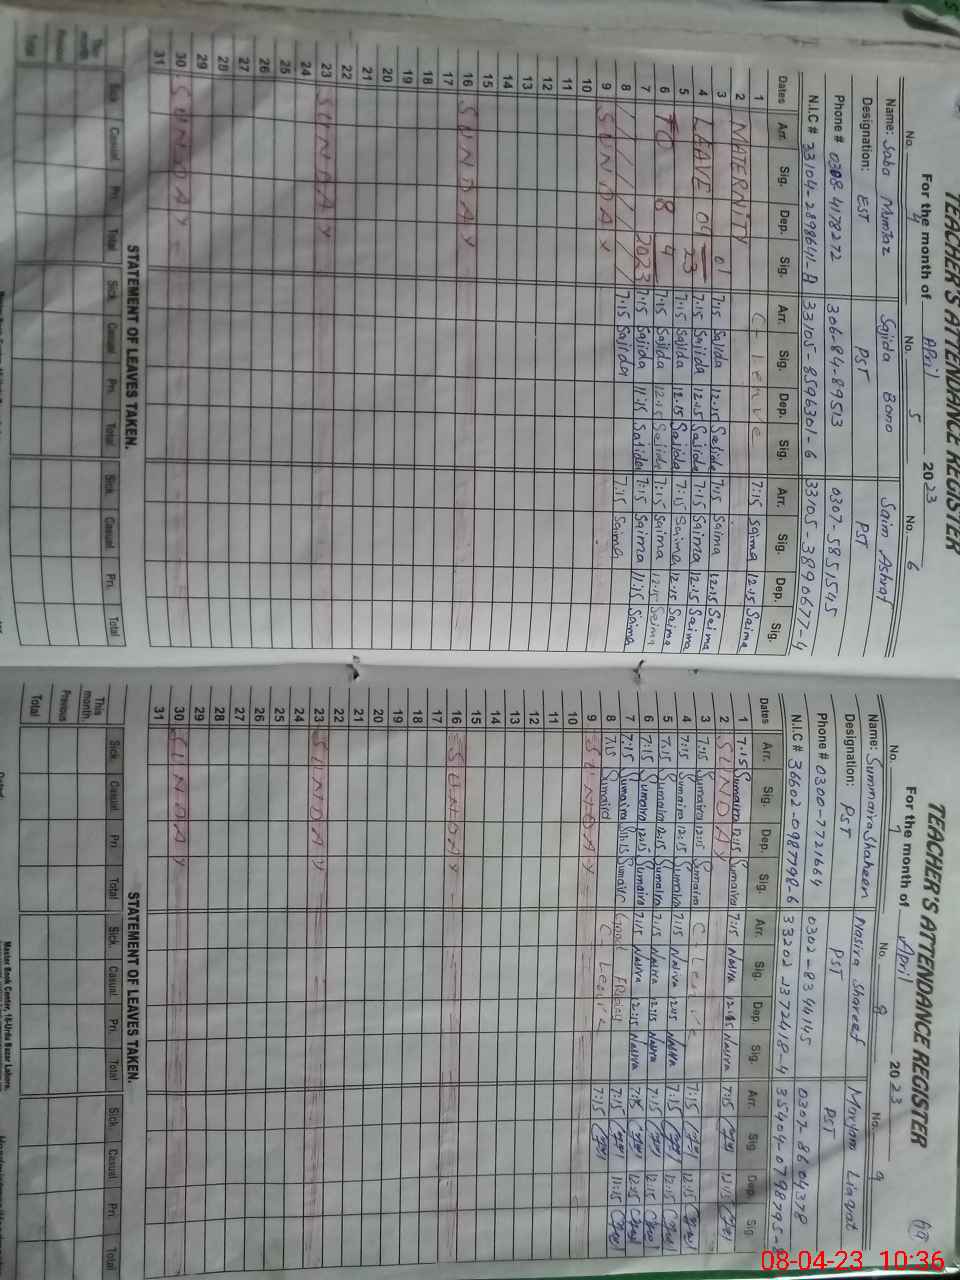 TEACHER'S ATTENDANCE REGISTER
For the month of April 2023
No. 4 No. 5 No. 6
Name: Saba Mumtaz Sajida Bono Saim Ashraf
Designation: EST PST PST
Phone # 0308-4178272 306-84-89513 0307-5851545
N.I.C # 33104-2898641-8 33105-8596301-6 33105-3890677-4
Dates Arr. Sig. Dep. Sig. Arr. Sig. Dep. Sig. Arr. Sig. Dep. Sig.
1 C-leave 7:15 Saima 12:15 Saima
2 MATERNITY
3 01 7:15 Sajida 12:15 Sajida 7:15 Saima 12:15 Saima
4 LEAVE 04 23 7:15 Sajida 12:15 Sajida 7:15 Saima 12:15 Saima
5 7:15 Sajida 12:15 Sajida 7:15 Saima 12:15 Saima
6 TO 8 4 7:15 Sajida 12:15 Sajida 7:15 Saima 12:15 Saima
7 2023 7:15 Sajida 11:15 Sajida 7:15 Saima 11:15 Saima
8 7:15 Sajida 7:15 Saima
9 SUNDAY
10
11
12
13
14
15
16 SUNDAY
17
18
19
20
21
22
23 SUNDAY
24
25
26
27
28
29
30 SUNDAY
31
STATEMENT OF LEAVES TAKEN.
Sick Casual Pri. Total Sick. Casual Pri. Total Sick. Casual Pri. Total
This month
Previous
Total
TEACHER'S ATTENDANCE REGISTER
For the month of April 2023
No. 7 No. 8 No. 9
Name: Summaira Shaheen Nasira Shareef Maryam Liaqat
Designation: PST PST PST
Phone # 0300-7721664 0302-8344145 0307-8604378
N.I.C # 36602-0987798-6 33202-1372418-4 35404-0798795-
Dates Arr. Sig. Dep. Sig. Arr. Sig. Dep. Sig. Arr. Sig. Dep. Sig.
1 7:15 Sumaira 12:15 Sumaira 7:15 Nasira 12:15 Nasira 7:15 12:15
2 SUNDAY
3 7:15 Sumaira 12:15 Sumaira C-Leave 7:15 12:15
4 7:15 Sumaira 12:15 Sumaira 7:15 Nasira 12:15 Nasira 7:15 12:15
5 7:15 Sumaira 12:15 Sumaira 7:15 Nasira 12:15 Nasira 7:15 12:15
6 7:15 Sumaira 12:15 Sumaira 7:15 Nasira 12:15 Nasira 7:15 12:15
7 7:15 Sumaira 11:15 Sumaira Good Friday 7:15 11:15
8 7:15 Sumaira C-Leave 7:15
9 SUNDAY
10
11
12
13
14
15
16 SUNDAY
17
18
19
20
21
22
23 SUNDAY
24
25
26
27
28
29
30 SUNDAY
31
STATEMENT OF LEAVES TAKEN.
Sick. Casual Pri. Total Sick. Casual Pri. Total Sick. Casual Pri. Total
This month
Previous
Total
Master Book Center, 16-Urdu Bazar Lahore.
08-04-23 10:36